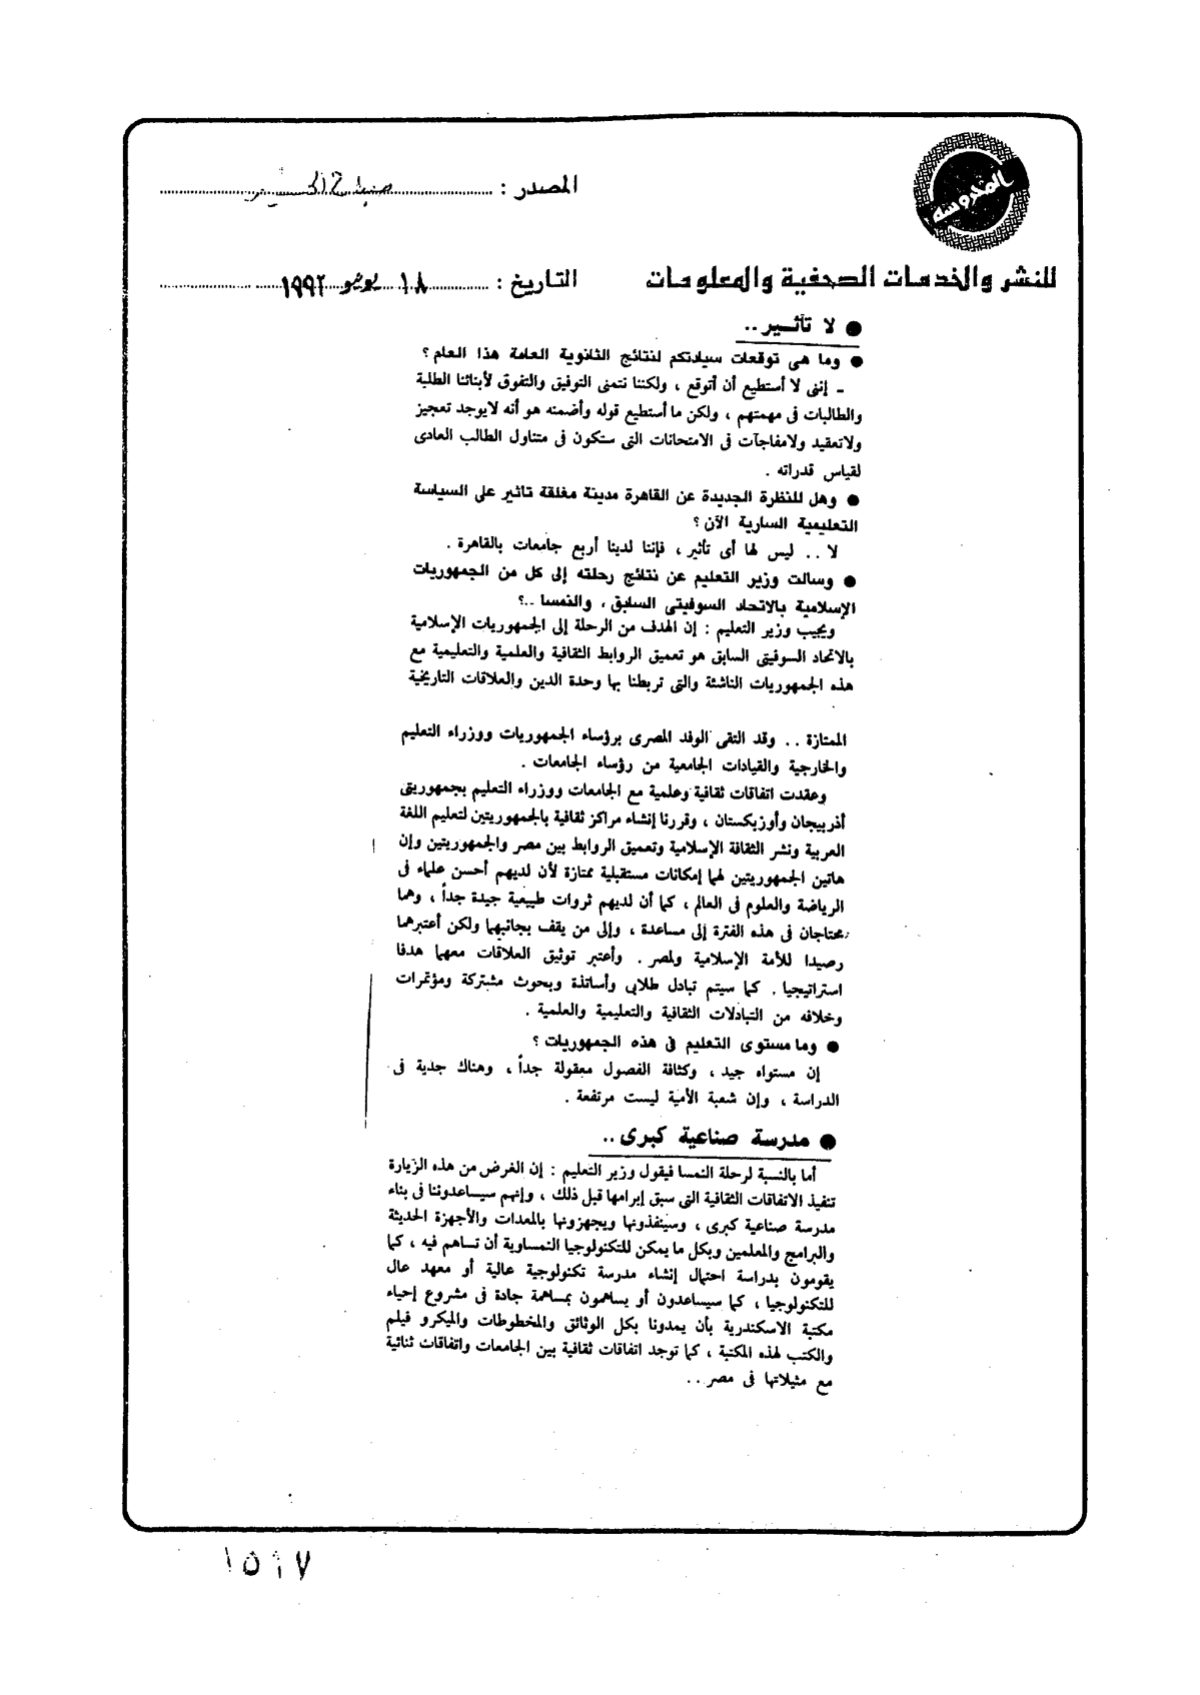 المدروسة
المصدر : صباح الخير
للنشر والخدمات الصحفية والمعلومات
التاريخ : ١٨ يونيو ١٩٩٢
● لا تأثير ..
● وما هى توقعات سيادتكم لنتائج الثانوية العامة هذا العام ؟
ـ إننى لا أستطيع أن أتوقع ، ولكننا نتمنى التوفيق والتفوق لأبنائنا الطلبة
والطالبات فى مهمتهم ، ولكن ما أستطيع قوله وأضمنه هو أنه لايوجد تعجيز
ولاتعقيد ولامفاجآت فى الامتحانات التى ستكون فى متناول الطالب العادى
لقياس قدراته .
● وهل للنظرة الجديدة عن القاهرة مدينة مغلقة تاثير على السياسة
التعليمية السارية الآن ؟
لا .. ليس لها أى تأثير ، فإننا لدينا أربع جامعات بالقاهرة .
● وسالت وزير التعليم عن نتائج رحلته إلى كل من الجمهوريات
الإسلامية بالاتحاد السوفيتى السابق ، والنمسا ..؟
ويجيب وزير التعليم : إن الهدف من الرحلة إلى الجمهوريات الإسلامية
بالاتحاد السوفيتى السابق هو تعميق الروابط الثقافية والعلمية والتعليمية مع
هذه الجمهوريات الناشئة والتى تربطنا بها وحدة الدين والعلاقات التاريخية
الممتازة .. وقد التقى الوفد المصرى برؤساء الجمهوريات ووزراء التعليم
والخارجية والقيادات الجامعية من رؤساء الجامعات .
وعقدت اتفاقات ثقافية وعلمية مع الجامعات ووزراء التعليم بجمهوريتى
أذربيجان وأوزبكستان ، وقررنا إنشاء مراكز ثقافية بالجمهوريتين لتعليم اللغة
العربية ونشر الثقافة الإسلامية وتعميق الروابط بين مصر والجمهوريتين وإن
هاتين الجمهوريتين لهما إمكانات مستقبلية ممتازة لأن لديهم أحسن علماء فى
الرياضة والعلوم فى العالم ، كما أن لديهم ثروات طبيعية جيدة جداً ، وهما
محتاجان فى هذه الفترة إلى مساعدة ، وإلى من يقف بجانبهما ولكن أعتبرهما
رصيدا للأمة الإسلامية ولمصر . وأعتبر توثيق العلاقات معهما هدفا
استراتيجيا . كما سيتم تبادل طلابى وأساتذة وبحوث مشتركة ومؤتمرات
وخلافه من التبادلات الثقافية والتعليمية والعلمية .
● وما مستوى التعليم فى هذه الجمهوريات ؟
إن مستواه جيد ، وكثافة الفصول معقولة جداً ، وهناك جدية فى
الدراسة ، وإن شعبة الأمية ليست مرتفعة .
● مدرسة صناعية كبرى ..
أما بالنسبة لرحلة النمسا فيقول وزير التعليم : إن الغرض من هذه الزيارة
تنفيذ الاتفاقات الثقافية التى سبق إبرامها قبل ذلك ، وإنهم سيساعدوننا فى بناء
مدرسة صناعية كبرى ، وسينفذونها ويجهزونها بالمعدات والأجهزة الحديثة
والبرامج والمعلمين وبكل ما يمكن للتكنولوجيا النمساوية أن تساهم فيه ، كما
يقومون بدراسة احتمال إنشاء مدرسة تكنولوجية عالية أو معهد عال
للتكنولوجيا ، كما سيساعدون أو يساهمون بمساهمة جادة فى مشروع إحياء
مكتبة الاسكندرية بأن يمدونا بكل الوثائق والمخطوطات والميكرو فيلم
والكتب لهذه المكتبة ، كما توجد اتفاقات ثقافية بين الجامعات واتفاقات ثنائية
مع مثيلاتها فى مصر ..